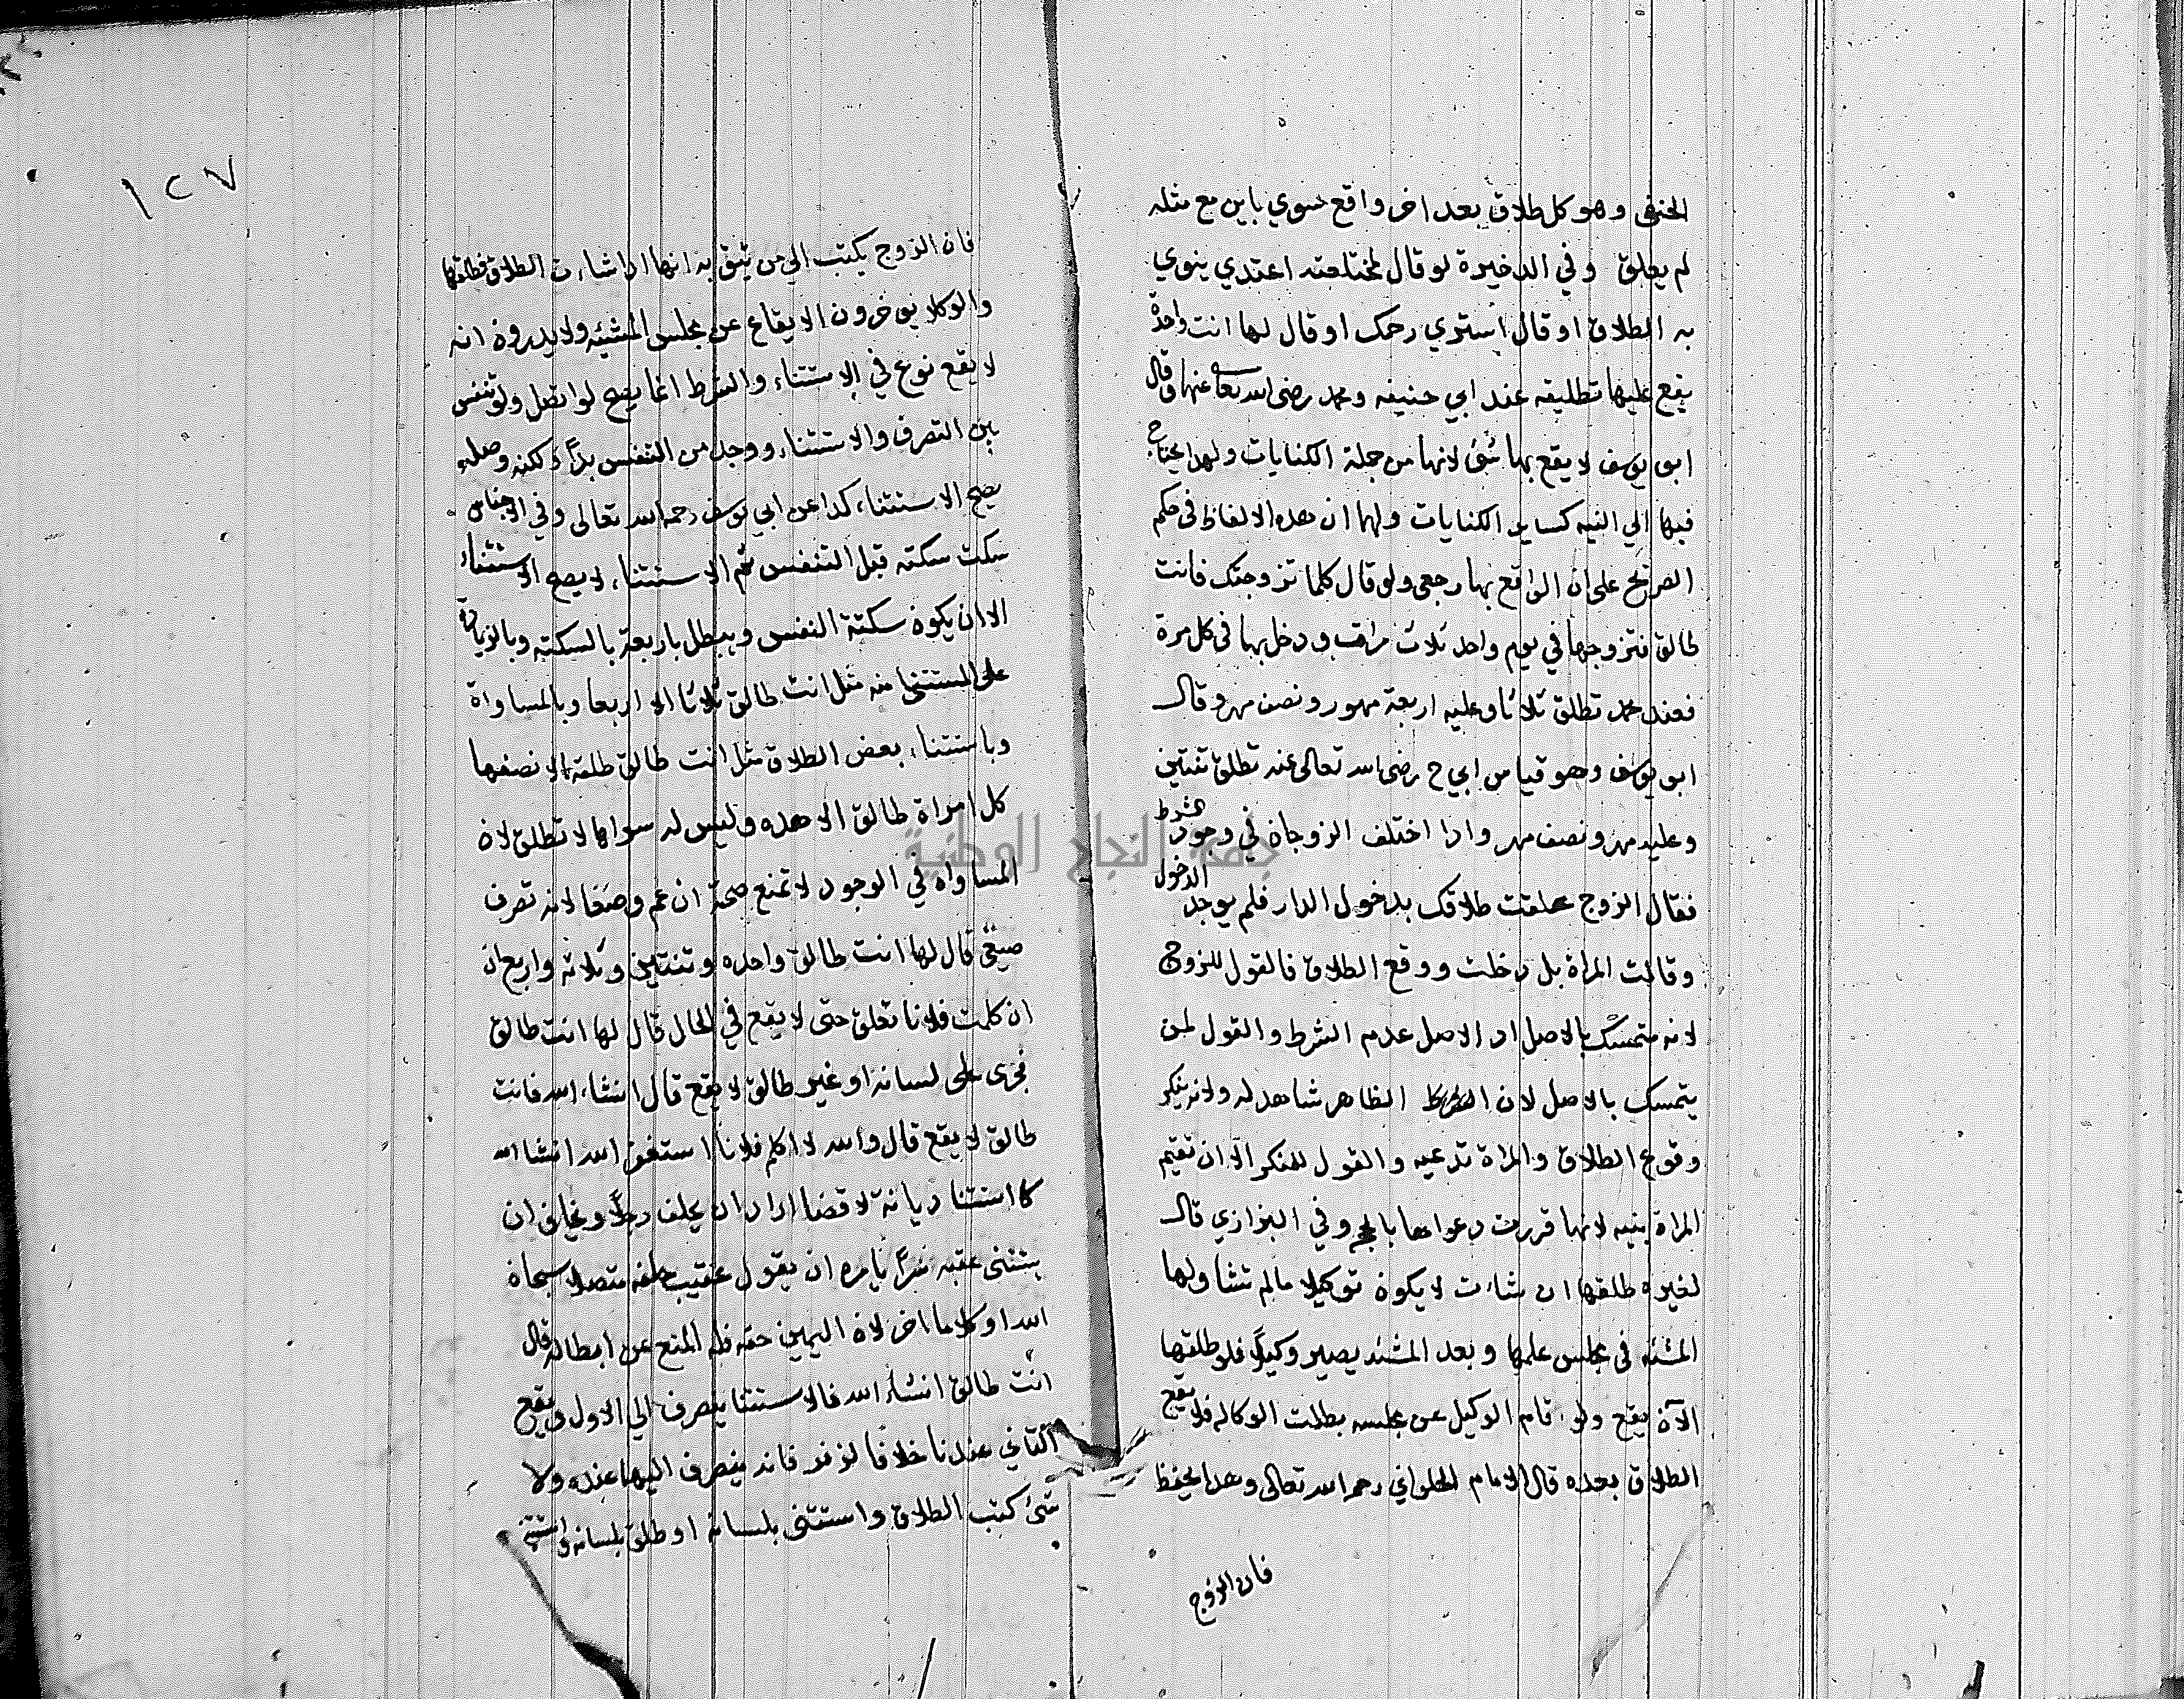 الحنفى وهو كل طلاق بعد اخر واقع سوي باين مع مثله
لم يعلق وفي الدخيرة لو قال لمختلعته اعتدي ينوي
به الطلاق او قال استبري رحمك او قال لها انت واحدة
يقع عليها تطليقه عند ابي حنيفه ومحمد رضى الله تعالى عنهما وقال
ابو يوسف لا يقع بها شئ لانها من جملة الكنايات ولهدا يحتاج
فيها الي النيه كساير الكنايات ولهما ان هده الالفاظ فى حكم
الصريح على ان الواقع بها رجعى ولو قال كلما تزوجتك فانت
طالق فتزوجها في يوم واحد ثلاث مرات ودخل بها فى كل مرة
فعند محمد تطلق ثلاثا وعليه اربعة مهور ونصف مهر وقال
ابو يوسف وهو قياس ابي ح رضى الله تعالى عنه تطلق ثنتين
وعليه مهر ونصف مهر وادا اختلف الزوجان في وجود شرط
فقال الزوج علقت طلاقك بدخول الدار فلم يوجد الدخول
وقالت المراة بل دخلت ووقع الطلاق فالقول للزوج
لانه متمسك بالاصل اد الاصل عدم الشرط والقول لمن
يتمسك بالاصل لان الظاهر شاهد له ولانه ينكر
وقوع الطلاق والمراة تدعيه والقول للمنكر الا ان تقيم
المراة بينيه لانها قررت دعواها بالحجج وفي البزازي قال
لغيره طلقها ان شاءت لا يكون توكيلا مالم تشا ولها
المشئه فى مجلس علمها وبعد المشئه يصير وكيلا فلو طلقها
الآن يقع ولو قام الوكيل عن مجلسه بطلت الوكاله فلا يقع
الطلاق بعده قال الامام الحلواني رحمه الله تعالى وهدا يحفظ
فان الزوج
١٢٧
فان الزوج يكتب الي من يثق به انها ادا شاءت الطلاق فطلقها
والوكلا يوخرون الايقاع عن مجلس المشيئه ولا يدرون انه
لا يقع نوع في الاستثناء والشرط انما يصح لو اتصل ولو تنفس
بين التصرف والاستثناء ووجد من التنفس بدًا لكنه وصله
يصح الاستثناء كدا عن ابي يوسف رحمه الله تعالى وفي الاجناس
سكت سكته قبل التنفس ثم الاستثناء لا يصح الاستثناء
الا ان يكون سكتة النفس ويبطل باربعة بالسكته وبالزيادة
على المستثنى منه مثل انت طالق ثلاثا الا اربعا وبالمساواة
وباستثناء بعض الطلاق مثل انت طالق طلقة الا نصفها
كل امراة طالق الا هده وليس له سواها لا تطلق لان
المساواه في الوجود لا تمنع صحته ان عم وضعا لانه تصرف
صيغى قال لها انت طالق واحده وثنتين وثلاثه واربع ان
ان كلمت فلانا تعلق حتى لا يقع في الحال قال لها انت طالق
فجرى على لسانه او غير طالق لا يقع قال انشاء الله فانت
طالق لا يقع قال والله لا اكلم فلانا استغفر الله انشا الله
كا استثنا ديانة لا قضا ادا اراد ان يحلف رجلا ويخاف ان
يستثنى عقبه سرا يامره ان يقول عقيب حلفه متصلا سبحان
الله او كلاما اخر لان اليمين حقه فله المنع عن ابطاله قال
انت طالق انشاء الله فالاستثنا ينصرف الي الاول ويقع
الثاني عندنا خلافا لزفر فانه ينصرف اليهما عنده ولا
شئ كتب الطلاق واستثنى بلسانه او طلق بلسانه واستثنى
جامعة النجاح الوطنية